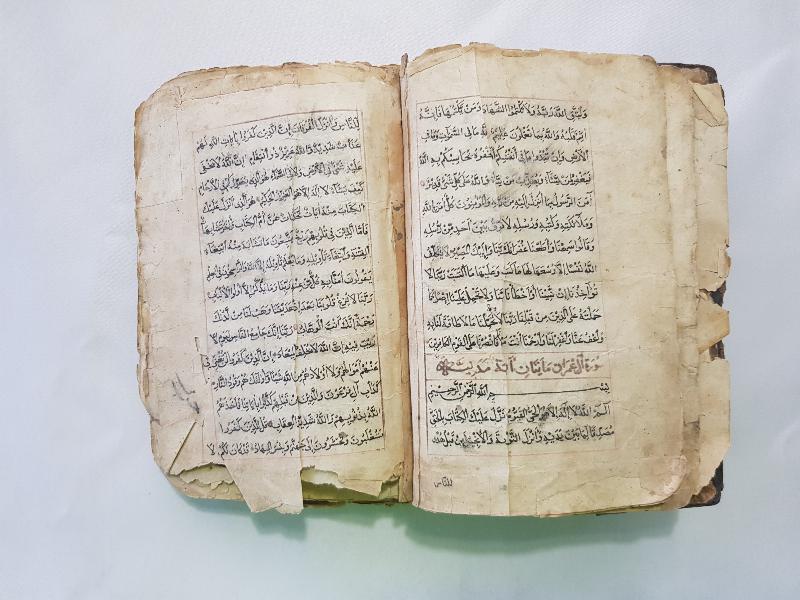 وليتق الله ربه ولا تكتموا الشهادة ومن يكتمها فانه
اثم قلبه والله بما تعملون عليم لله ما في السموات وما في
الارض وان تبدوا ما في انفسكم او تخفوه يحاسبكم به الله
فيغفر لمن يشاء ويعذب من يشاء والله على كل شئ قدير
آمن الرسول بما انزل اليه من ربه والمؤمنون كل آمن بالله
وملائكته وكتبه ورسله لا نفرق بين احد من رسله
وقالوا سمعنا واطعنا غفرانك ربنا واليك المصير لا يكلف
الله نفسا الا وسعها لها ما كسبت وعليها ما اكتسبت ربنا لا
تؤاخذنا ان نسينا او اخطأنا ربنا ولا تحمل علينا اصرا كما
حملته على الذين من قبلنا ربنا ولا تحملنا ما لا طاقة لنا به
واعف عنا واغفر لنا وارحمنا انت مولانا فانصرنا على القوم الكافرين
سورة آل عمران مايتان آية مدنية
بسم الله الرحمن الرحيم
الم الله لا اله الا هو الحي القيوم نزل عليك الكتاب بالحق
مصدقا لما بين يديه وانزل التورية والانجيل من قبل هدى
للناس
للناس وانزل الفرقان ان الذين كفروا بايات الله لهم
عذاب شديد والله عزيز ذو انتقام ان الله لا يخفى
عليه شئ في الارض ولا في السماء هو الذي يصوركم في الارحام
كيف يشاء لا اله الا هو العزيز الحكيم هو الذي انزل عليك
الكتاب منه ايات محكمات هن ام الكتاب واخر متشابهات
فاما الذين في قلوبهم زيغ فيتبعون ما تشابه منه ابتغاء
الفتنة وابتغاء تاويله وما يعلم تاويله الا الله والراسخون في العلم
يقولون امنا به كل من عند ربنا وما يذكر الا اولوا الالباب
ربنا لا تزغ قلوبنا بعد اذ هديتنا وهب لنا من لدنك
رحمة انك انت الوهاب ربنا انك جامع الناس ليوم لا
ريب فيه ان الله لا يخلف الميعاد ان الذين كفروا لن تغني
عنهم اموالهم ولا اولادهم من الله شيئا واولئك هم وقود النار
كداب ال فرعون والذين من قبلهم كذبوا باياتنا فاخذهم
الله بذنوبهم والله شديد العقاب قل للذين كفروا
ستغلبون وتحشرون الى جهنم وبئس المهاد قد كان لكم